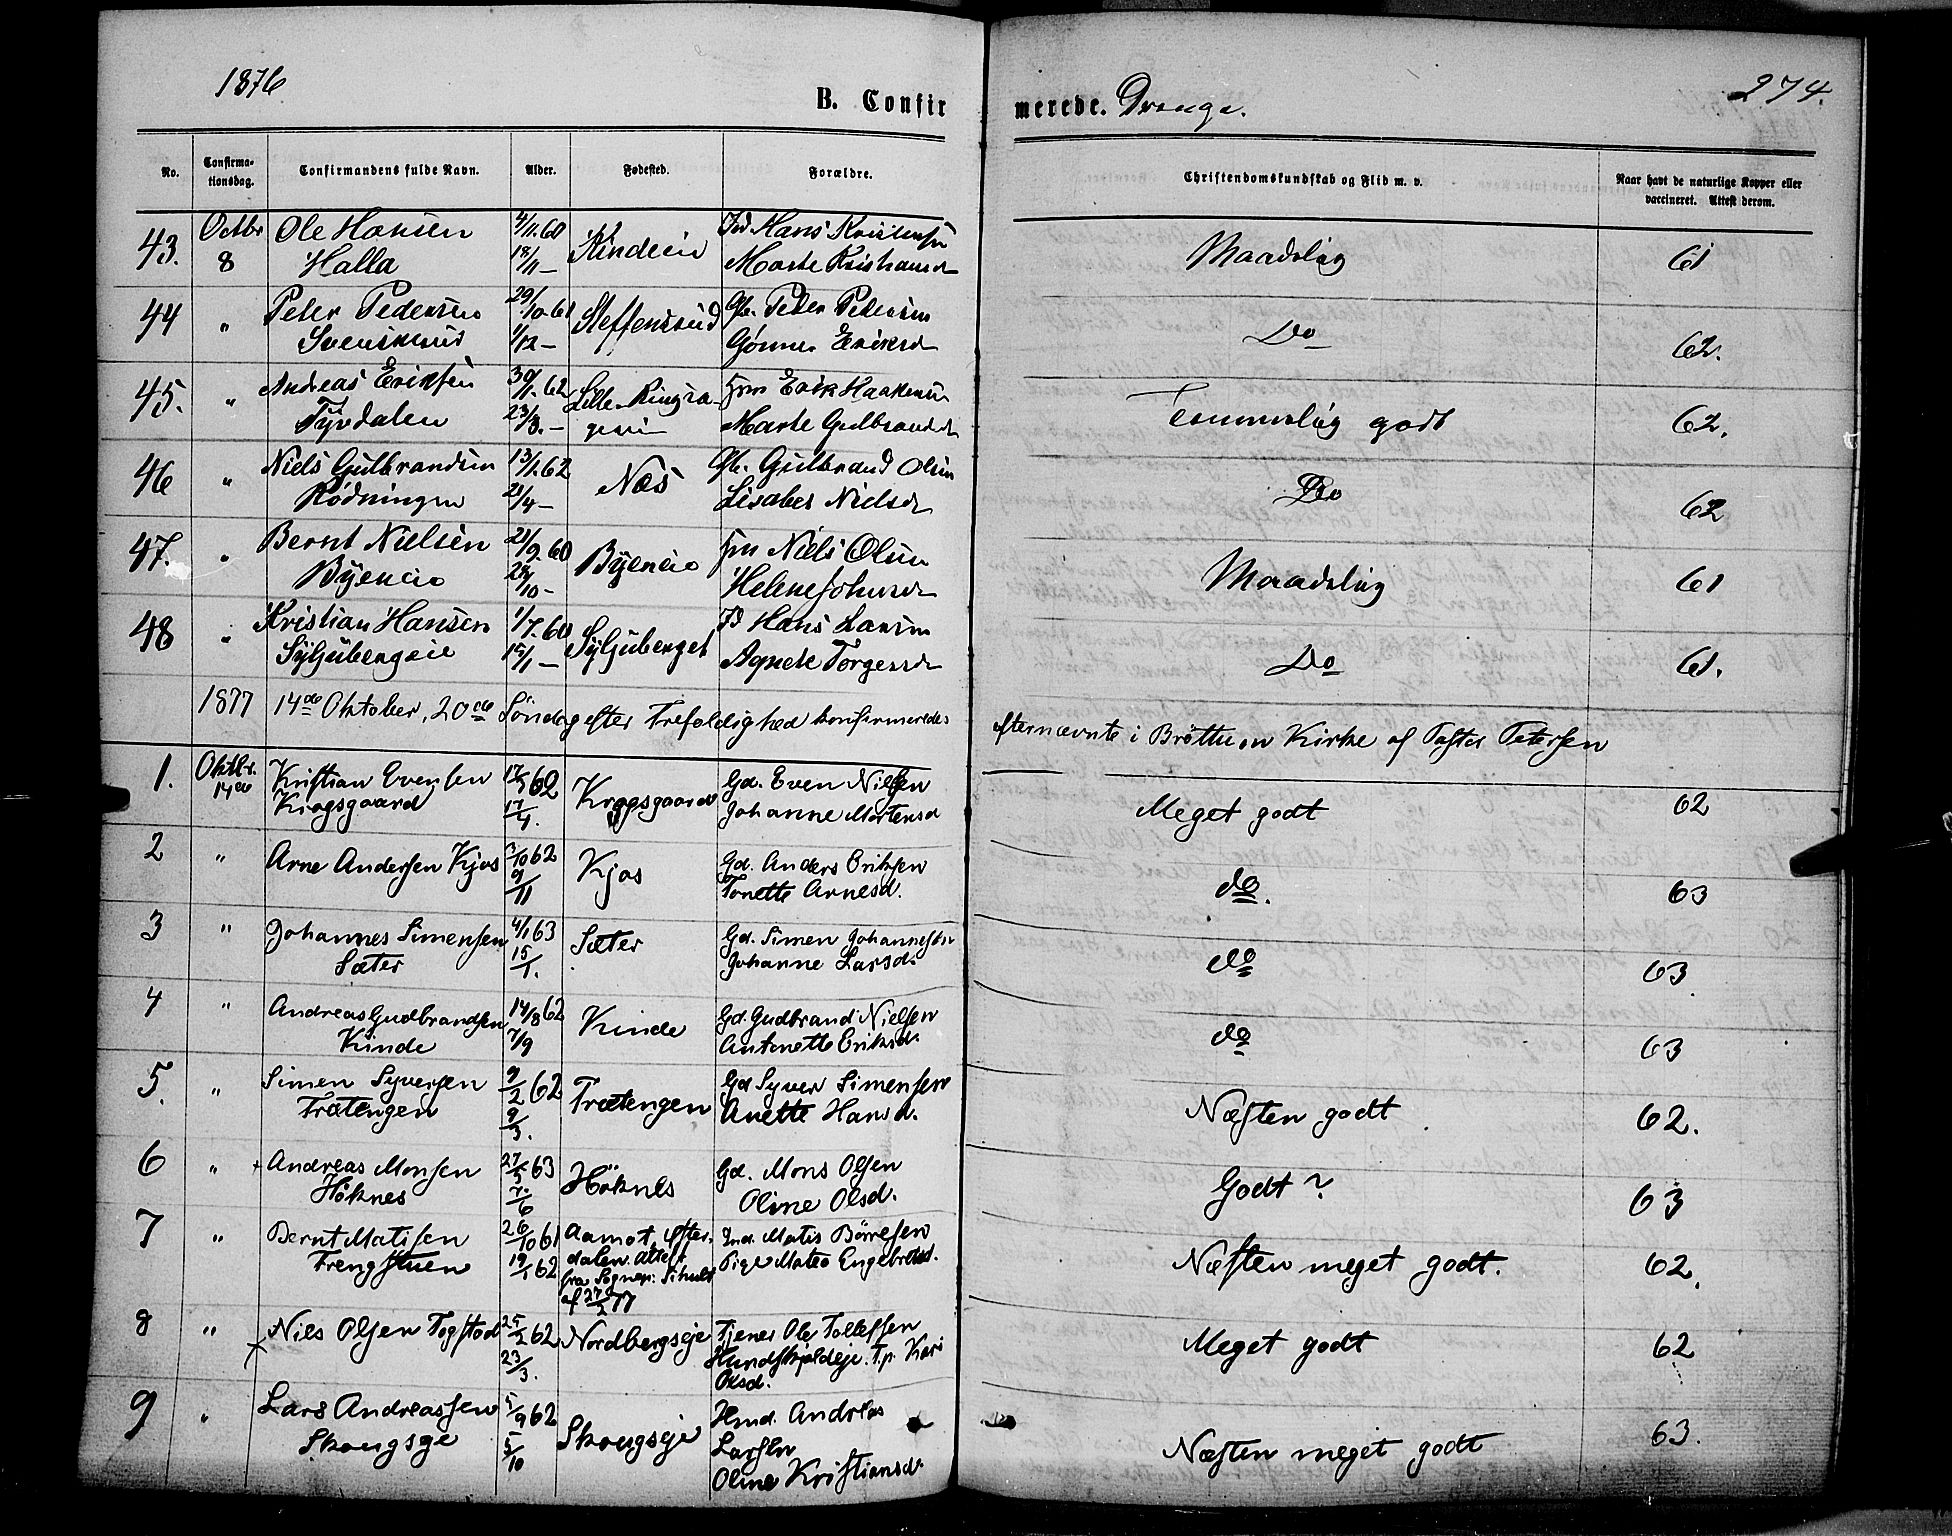 1876
B. Confirmerede. Drenge.
274.
No. Confirmationsdag. Confirmandens fulde Navn. Alder. Fødested. Forældre. Christendomskundskab og Flid m. v. Naar havt de naturlige Kopper eller vaccineret. Attest derom.
43. Octbr 8 Ole Hansen Halla 4/11.60 18/11 — Kindeie Hans Kristensen Marte Kristiansd Maadelig 61
44 " Peter Pedersen 29/10.61 1/12 — Steffensrud Peter Pedersen Gønner Eriksd Do 62.
45. " Andreas Eriksen Tyvdalen 30/1.62 23/3. — Lille Ringsageri Erik Haakensen Marte Gulbrandsd Temmelig godt 62.
46 " Niels Gulbrandsen Rødningen 13/1.62 21/4 — Næs Gulbrand Olsen Lisabet Nielsd Do 62
47. " Bernt Nielsen Byeneie 21/9.60 28/10 — Byeneie Niels Olsen Helene Johnsd Maadelig 61
48 " Kristian Hansen Syljubergeie 1/7.60 15/1 — Syljuberget Hans Larsen Agnete Torgersd Do 61.
1877 14de Oktober, 20de Søndag efter Trefoldighed konfirmeredes efternævnte i Brøttum Kirke af Pastor Petersen
1. Oktbr. 14de Kristian Evensen Kragsgaard 17/3 62 17/4. Kragsgaard Gd. Even Nielsen Johanne Mortensd Meget godt 62
2 " Arne Andersen Kjos 7/10 62 9/11 Kjos Gd. Anders Eriksen Tonette Arnesd. do. 63
3 " Johannes Simensen Sæter 4/1 63 15/1. Sæter Gd. Simen Johannessen Johanne Larsd. do 63
4 " Andreas Gudbrandsen Kinde 14/8 62 7/9 Kinde Gd. Gudbrand Nielsen Antonette Eriksd. do 63
5. " Simen Syversen Trætengen 9/2 62 9/3. Trætengen Gd Syver Simensen Anette Hansd. Næsten godt 62.
6 " Andreas Monsen Höknes 27/5 63 7/6 Höknes Gd. Mons Olsen Oline Olsd. Godt? 63
7 " Bernt Matisen Frengstuen 26/10 61 19/1 62 Aamot, Østerdalen. Attest fra Sognepr. Schult af 27/2 77 Ind. Matis Börresen Pige Matea Engebretsd. Næsten meget godt. 62.
8 " Nils Olsen Fogstad 25/2 62 23/3. Nordbergseje Tjener Ole Tollefsen Hundskjoldeje. T.p. Kari Olsd. Meget godt 62
9 " Lars Andreassen Skougseje 5/9 62 5/10 Skougseje Hmd. Andreas Larsen Oline Kristiansd. Næsten meget godt 63.